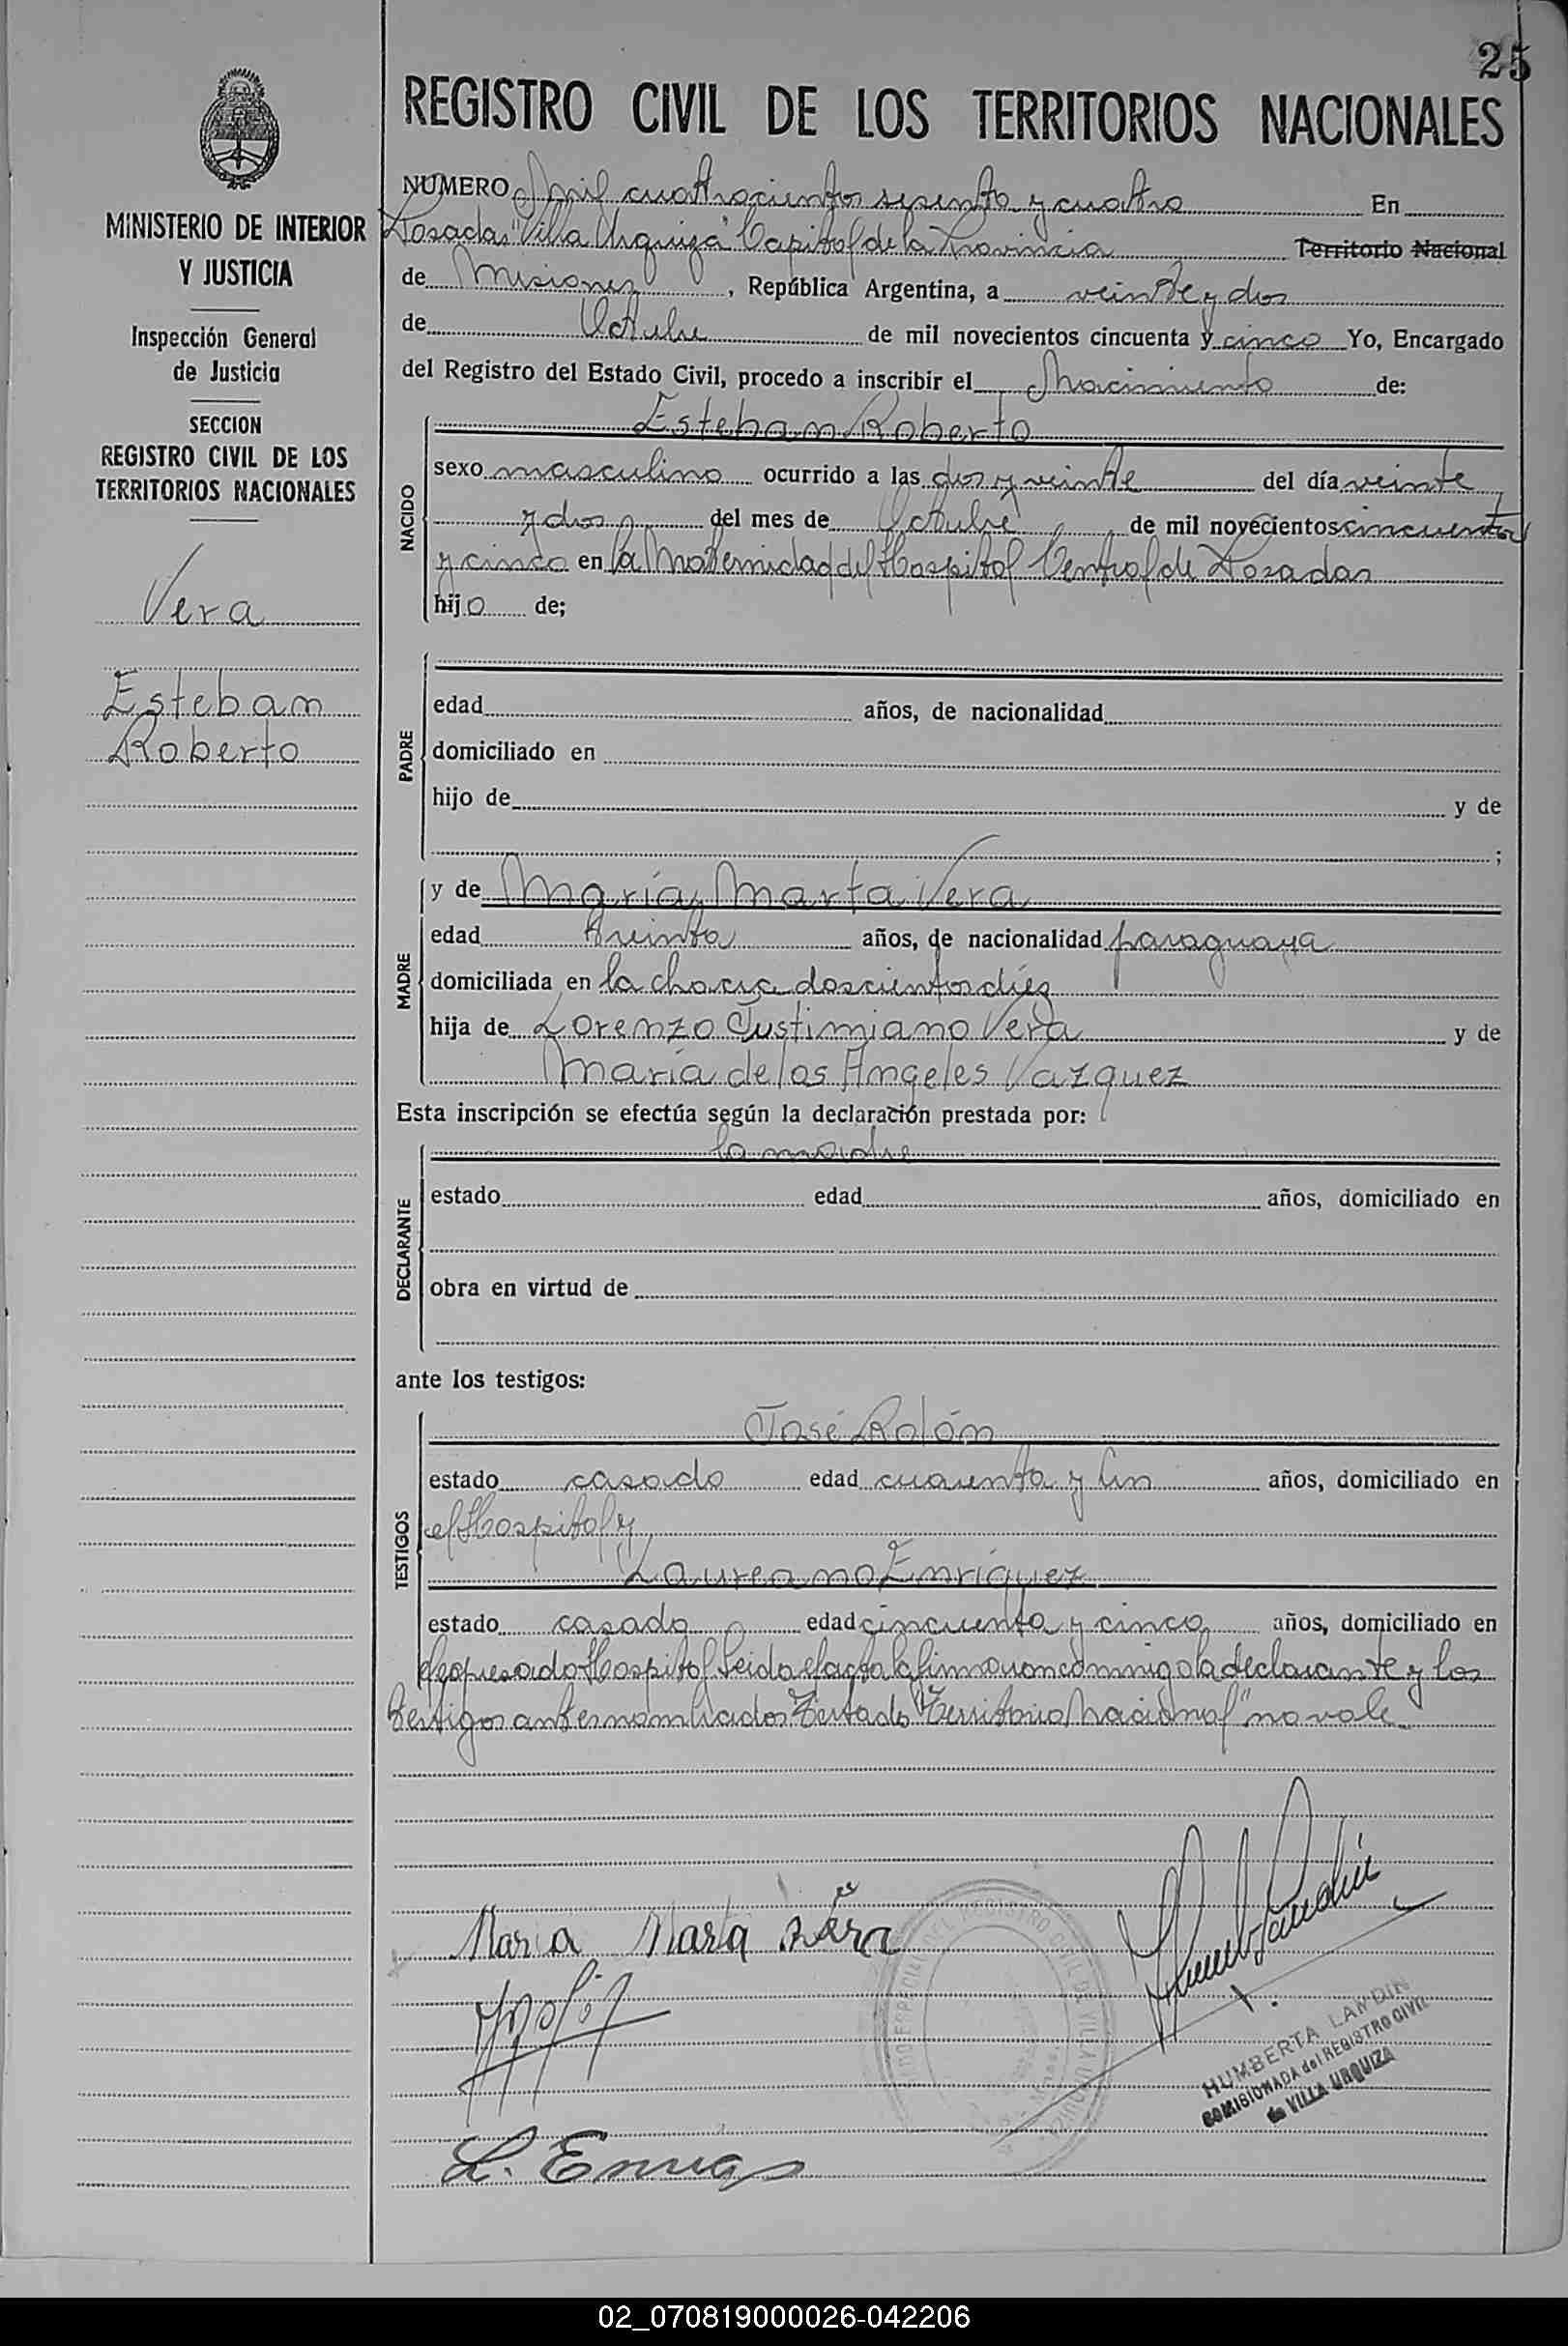 25
REGISTRO CIVIL DE LOS TERRITORIOS NACIONALES
MINISTERIO DE INTERIOR
Y JUSTICIA
Inspección General
de Justicia
SECCION
REGISTRO CIVIL DE LOS
TERRITORIOS NACIONALES
Vera
Esteban
Roberto
NUMERO mil cuatrocientos sesenta y cuatro En
Posadas "Villa Urquiza" Capital de la Provincia Territorio Nacional
de Misiones, República Argentina, a veinte y dos
de Octubre de mil novecientos cincuenta y cinco Yo, Encargado
del Registro del Estado Civil, procedo a inscribir el Nacimiento de:
NACIDO
Esteban Roberto
sexo masculino ocurrido a las dos y veinte del día veinte
y dos del mes de Octubre de mil novecientos cincuenta
y cinco en la Maternidad del Hospital Central de Posadas
hijo de;
PADRE
edad años, de nacionalidad
domiciliado en
hijo de y de
;
MADRE
y de María Marta Vera
edad treinta años, de nacionalidad paraguaya
domiciliada en la chacra doscientos diez
hija de Lorenzo Justiniano Vera y de
María de los Angeles Vazquez
Esta inscripción se efectúa según la declaración prestada por:
DECLARANTE
la madre
estado edad años, domiciliado en
obra en virtud de
ante los testigos:
TESTIGOS
José Rolón
estado casado edad cuarenta y un años, domiciliado en
el Hospital y
Laureano Enríquez
estado casado edad cincuenta y cinco años, domiciliado en
el expresado Hospital Leida el acta la firmaron conmigo la declarante y los
testigos antes nombrados Testado "Territorio Nacional" no vale
Maria Marta Vera
L. Enriq
REGISTRO CIVIL DE VILLA URQUIZA
HUMBERTA LANDIN
COMISIONADA del REGISTRO CIVIL
de VILLA URQUIZA
02_070819000026-042206